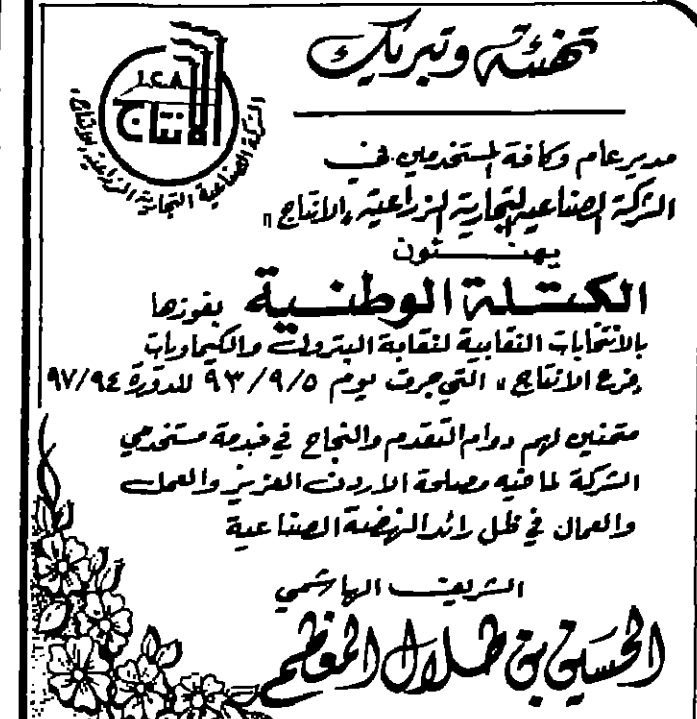 تهنئة وتبريك
I.C.A
الانتاج
الشركة الصناعية التجارية الزراعية "الإنتاج"
مدير عام وكافة المستخدمين في
الشركة الصناعية التجارية الزراعية "الانتاج"
يهنئون
الكتلة الوطنية بفوزها
بالانتخابات النقابية لنقابة البترول والكيماويات
"فرع الانتاج" التي جرت يوم ٩٣/٩/٥ للدورة ٩٧/٩٤
متمنين لهم دوام التقدم والنجاح في خدمة مستخدمي
الشركة لما فيه مصلحة الاردن العزيز والعمل
والعمال في ظل رائد النهضة الصناعية
الشريف الهاشمي
الحسين بن طلال المعظم